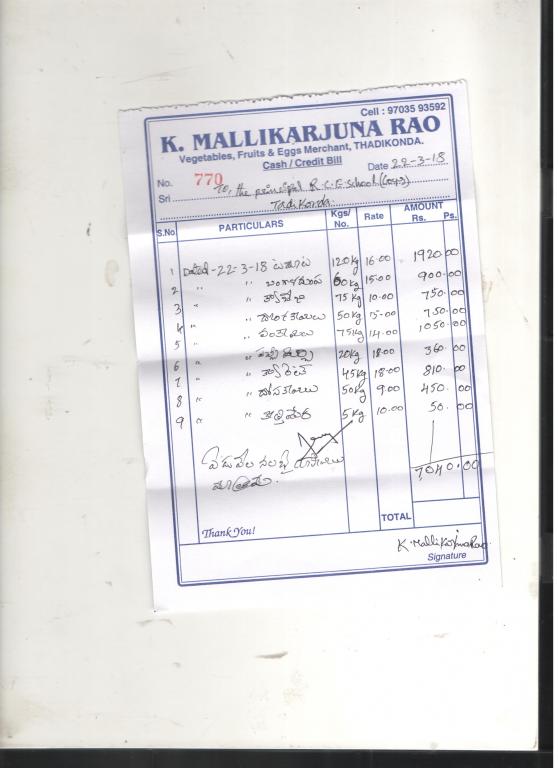 Cell : 97035 93592
K. MALLIKARJUNA RAO
Vegetables, Fruits & Eggs Merchant, THADIKONDA.
Cash / Credit Bill
No. 770 Date 22-3-18
Sri To, the principal R.C.E. School (Boys)
Tadikonda
S.No PARTICULARS Kgs/ No. Rate AMOUNT Rs. Ps.
1 Dated - 22-3-18 టమాటా 120 kg 16.00 1920.00
2 " " బంగాళదుంప 60 kg 15.00 900.00
3 " " క్యాబేజి 75 kg 10.00 750.00
4 " " 50 kg 15.00 750.00
5 " " వంకాయలు 75 kg 14.00 1050.00
6 " " 20 kg 18.00 360.00
7 " " క్యారెట్ 45 kg 18.00 810.00
8 " " దోసకాయలు 50 kg 9.00 450.00
9 " " కొత్తిమీర 5 kg 10.00 50.00
ఏడువేల నలభై రూపాయలు 7,040.00
మాత్రమే.
TOTAL
Thank You!
K. Mallikarjuna Rao
Signature